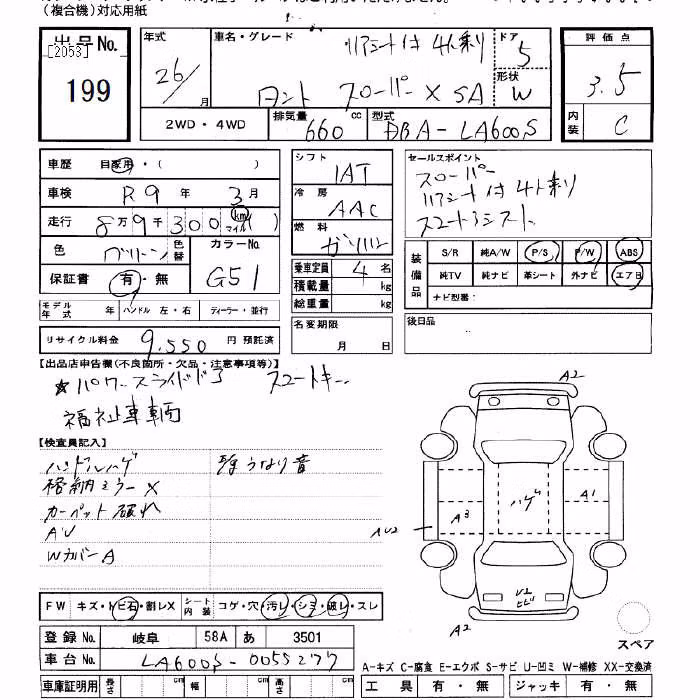 (複合機)対応用紙
出品No. 年式 車名・グレード リアシート付 4人乗り ドア 5 評価点
[2053] 199 26/ 月 タント スローパー X SA 形状 W 3.5
2WD・4WD 排気量 660 cc 型式 DBA-LA600S 内装 C
車歴 自家用・( ) シフト IAT セールスポイント
車検 R9 年 3 月 冷房 AAC スローパー
走行 8万9千300 km マイル ( ) 燃料 ガソリン リアシート付 4人乗り
スマートアシスト
色 グリーン 色替 カラーNo. G51 乗車定員 4 名
保証書 有・無 積載量 kg
総重量 kg
装備品 S/R 純A/W P/S P/W ABS
純TV 純ナビ 革シート 外ナビ エアB
ナビ型番:
モデル年式 年 ハンドル 左・右 ディーラー・並行
リサイクル料金 9,550 円 預託済 名変期限 月 日 後日品
【出品店申告欄(不良箇所・欠品・注意事項等)】
★パワースライドドア スマートキー
福祉車輌
【検査員記入】
ハンドルハゲ
格納ミラーX
カーペット破れ
AU
WカバーA
A2
ハゲ
A1
A3
AU2
U2
ヒビ
A2
FW キズ・トビ石・割レX シート内装 コゲ・穴・汚レ・シミ・破レ・スレ
登録No. 岐阜 58A あ 3501
車台No. LA600S-0055277
スペア
A-キズ C-腐食 E-エクボ S-サビ U-凹ミ W-補修 XX-交換済
車庫証明用 長さ cm 幅 cm 高さ cm 工具 有・無 ジャッキ 有・無